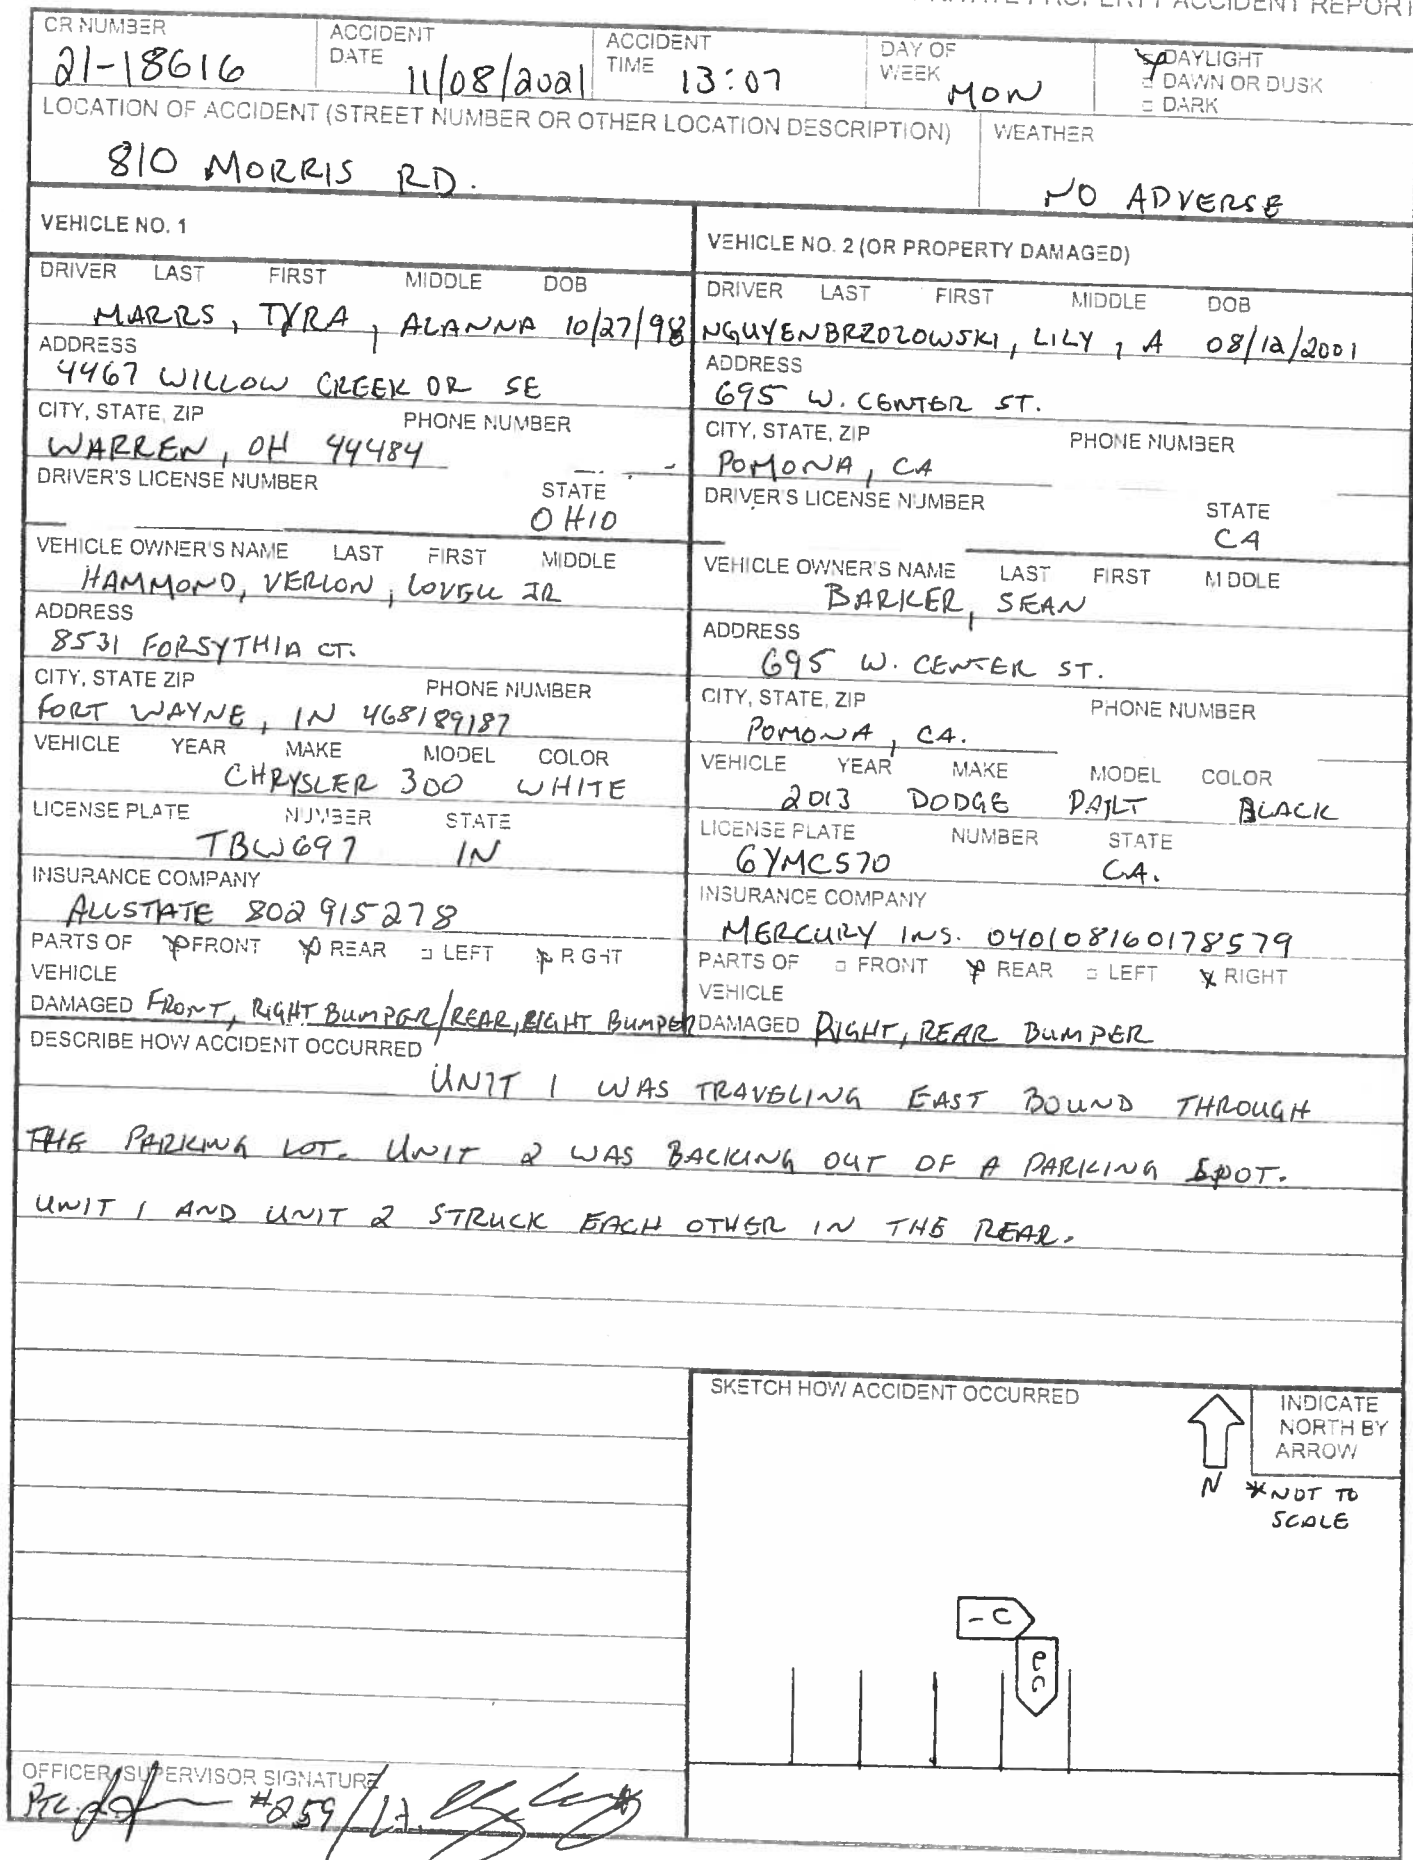 PROPERTY ACCIDENT REPORT
CR NUMBER ACCIDENT DATE ACCIDENT TIME DAY OF WEEK DAYLIGHT
21-18616 11/08/2021 13:07 MON DAWN OR DUSK
DARK
LOCATION OF ACCIDENT (STREET NUMBER OR OTHER LOCATION DESCRIPTION) WEATHER
810 MORRIS RD. NO ADVERSE
VEHICLE NO. 1
VEHICLE NO. 2 (OR PROPERTY DAMAGED)
DRIVER LAST FIRST MIDDLE DOB
MARRS, TYRA, ALANNA 10/27/98
ADDRESS
4467 WILLOW CREEK DR SE
CITY, STATE, ZIP PHONE NUMBER
WARREN, OH 44484
DRIVER'S LICENSE NUMBER STATE
OHIO
VEHICLE OWNER'S NAME LAST FIRST MIDDLE
HAMMOND, VERLON, LOVELL JR
ADDRESS
8531 FORSYTHIA CT.
CITY, STATE ZIP PHONE NUMBER
FORT WAYNE, IN 468189187
VEHICLE YEAR MAKE MODEL COLOR
CHRYSLER 300 WHITE
LICENSE PLATE NUMBER STATE
TBW697 IN
INSURANCE COMPANY
ALLSTATE 802 915278
PARTS OF FRONT REAR LEFT RIGHT
VEHICLE
DAMAGED FRONT, RIGHT BUMPER/REAR, RIGHT BUMPER
DRIVER LAST FIRST MIDDLE DOB
NGUYENBRZOZOWSKI, LILY, A 08/12/2001
ADDRESS
695 W. CENTER ST.
CITY, STATE, ZIP PHONE NUMBER
POMONA, CA
DRIVER'S LICENSE NUMBER STATE
CA
VEHICLE OWNER'S NAME LAST FIRST MIDDLE
BARKER, SEAN
ADDRESS
695 W. CENTER ST.
CITY, STATE, ZIP PHONE NUMBER
POMONA, CA.
VEHICLE YEAR MAKE MODEL COLOR
2013 DODGE DART BLACK
LICENSE PLATE NUMBER STATE
6YMC570 CA.
INSURANCE COMPANY
MERCURY INS. 040108160178579
PARTS OF FRONT REAR LEFT RIGHT
VEHICLE
DAMAGED RIGHT, REAR BUMPER
DESCRIBE HOW ACCIDENT OCCURRED
UNIT 1 WAS TRAVELING EAST BOUND THROUGH
THE PARKING LOT. UNIT 2 WAS BACKING OUT OF A PARKING SPOT.
UNIT 1 AND UNIT 2 STRUCK EACH OTHER IN THE REAR.
SKETCH HOW ACCIDENT OCCURRED
INDICATE
NORTH BY
ARROW
N *NOT TO
SCALE
OFFICER/SUPERVISOR SIGNATURE
PTL. #259 / Lt.